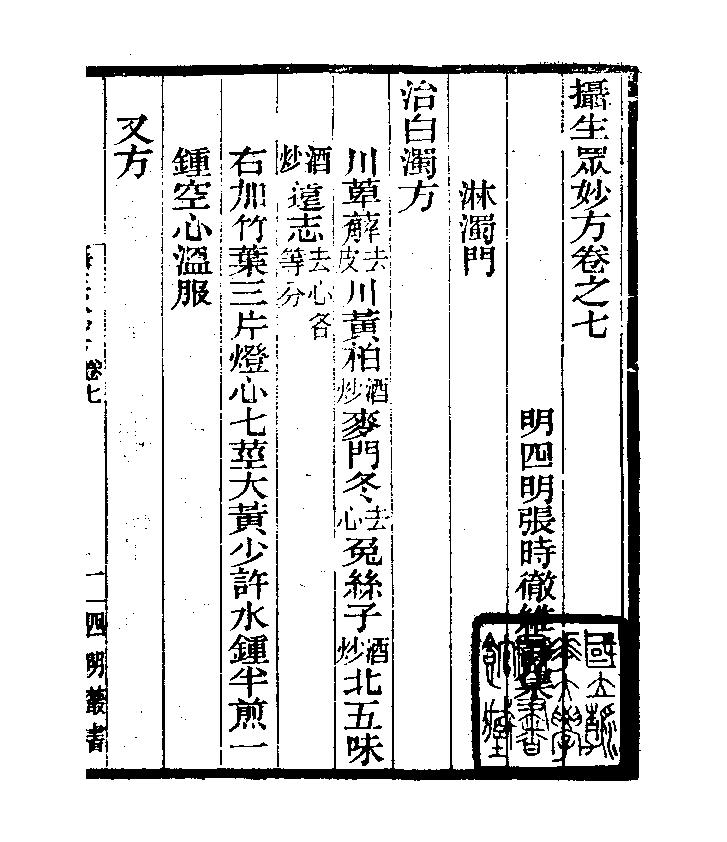 攝生眾妙方卷之七
明四明張時徹維
集
淋濁門
治白濁方
川萆薢去皮川黃柏酒炒麥門冬去心菟絲子酒炒北五味
酒炒遠志去心各等分
右加竹葉三片燈心七莖大黃少許水鍾半煎一
鍾空心溫服
又方
卷七
一
四明叢書
國立
大學
書